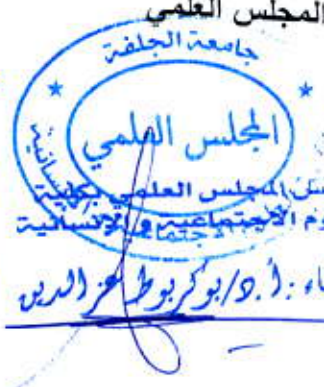 المجلس العلمي
جامعة الجلفة
المجلس العلمي
المجلس العلمي لكلية
الاجتماعية و الإنسانية
أ.د/بوكربوط عز الدين